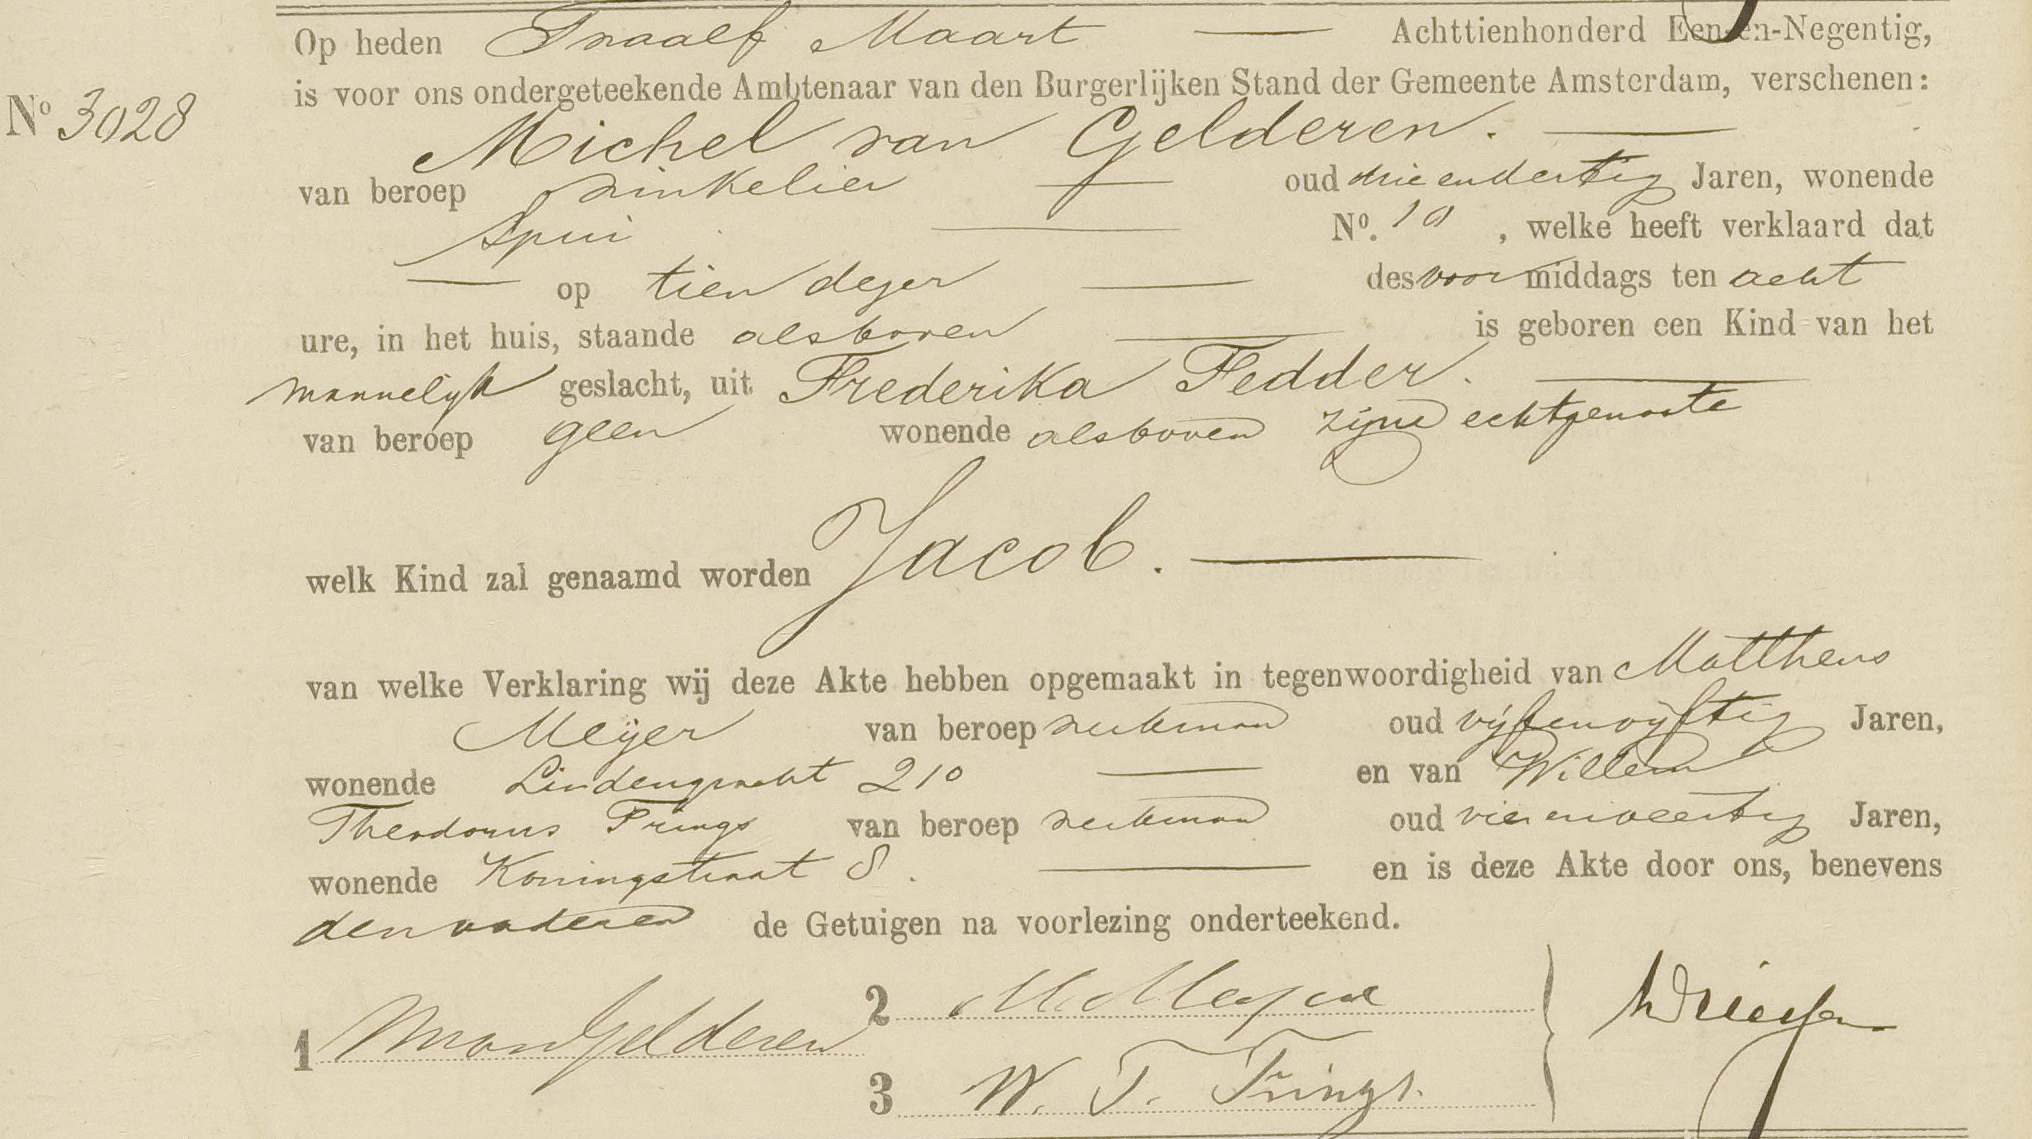 Op heden Twaalf Maart — Achttienhonderd Een-en-Negentig,
is voor ons ondergeteekende Ambtenaar van den Burgerlijken Stand der Gemeente Amsterdam, verschenen:
No 3028
Michel van Gelderen. —
van beroep winkelier — oud drie en dertig Jaren, wonende
Spui — No. 10, welke heeft verklaard dat
— op tien dezer — des voormiddags ten acht
ure, in het huis, staande alsboven — is geboren een Kind van het
mannelijk geslacht, uit Frederika Fedder. —
van beroep geen wonende alsboven zijne echtgenoote
welk Kind zal genaamd worden Jacob. —
van welke Verklaring wij deze Akte hebben opgemaakt in tegenwoordigheid van Mattheus
Meijer van beroep werkman oud vijfenvijftig Jaren,
wonende Lindengracht 210 — en van Willem
Theodorus Frings van beroep werkman oud vier en veertig Jaren,
wonende Koningstraat 8. — en is deze Akte door ons, benevens
den vader en de Getuigen na voorlezing onderteekend.
1 M van Gelderen
2 M. Meyer
3 W. T. Frings.